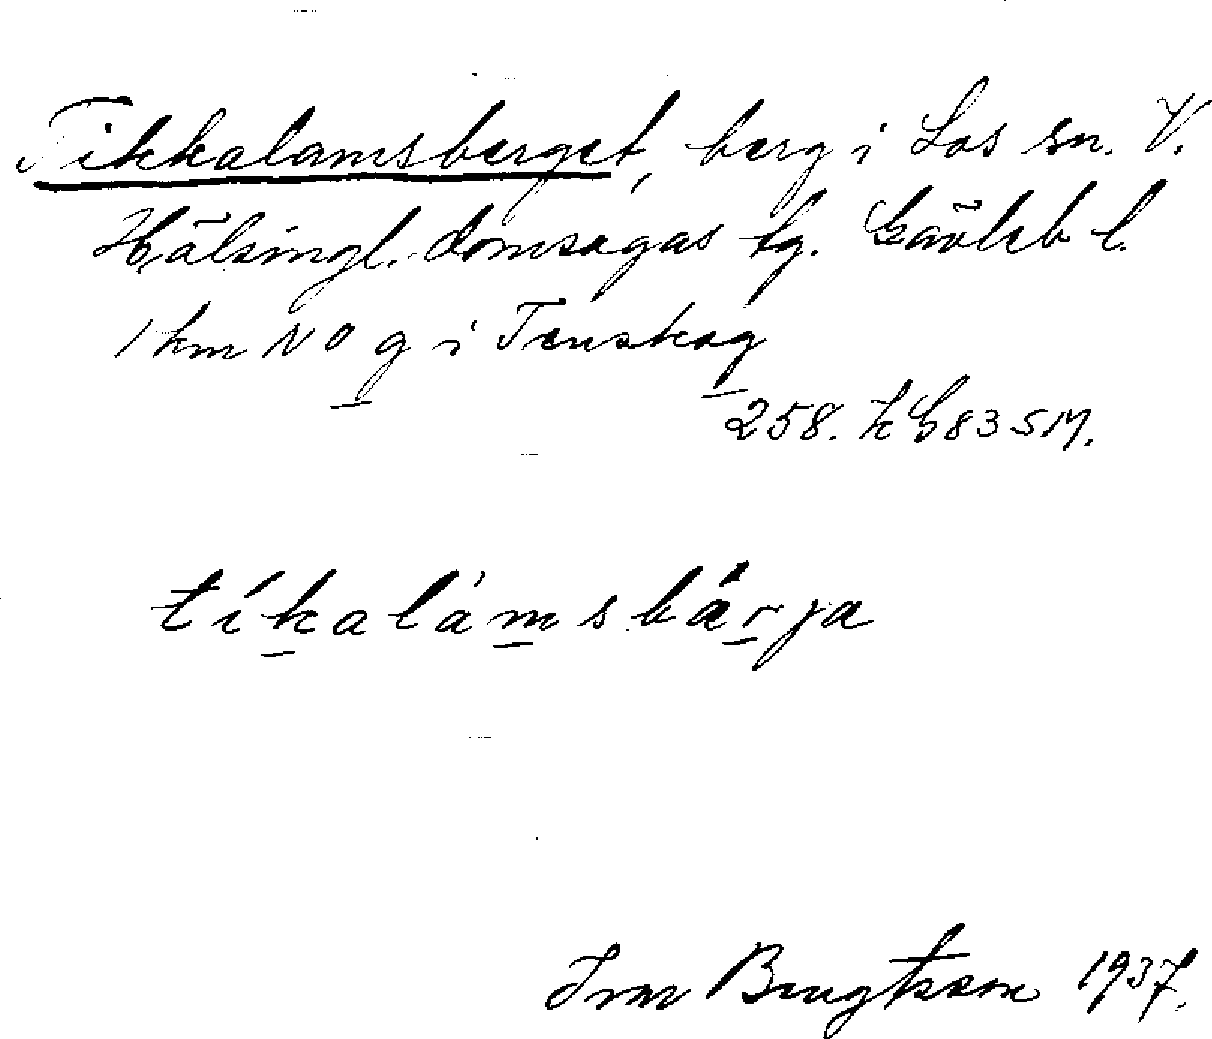 Tikkalamsberget, berg i Los sn. V.
Hälsingl. domsagas tg. Gävleb l.
1 km NO g i Tenskog
258.
tíkalámsbǽrja
Ivar Bengtsson 1937.